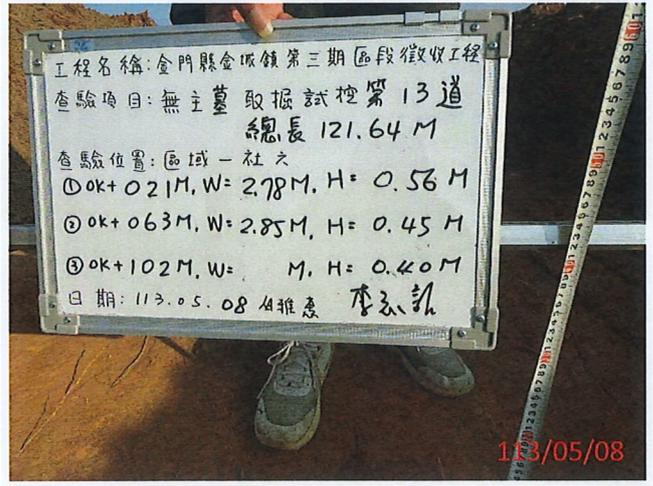 工程名稱:金門縣金城鎮第三期區段徵收工程
查驗項目:無主墓取掘試挖第13道
總長 121.64 M
查驗位置:區域一社之
①0K+021M, W= 2.78M, H= 0.56 M
②0K+063M, W=2.85M, H= 0.45 M
③0K+102M, W= M, H= 0.40M
日期:113.05.08
113/05/08